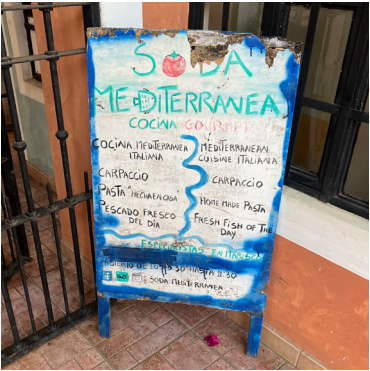 SODA
MEDITERRANEA
COCINA GOURMET
COCINA MEDITERRANEA
ITALIANA
CARPACCIO
PASTA "HECHA EN CASA
PESCADO FRESCO
DEL DÍA
MEDITERRANEAN
CUISINE ITALIANA
CARPACCIO
HOME MADE PASTA
FRESH FISH OF THE
DAY
ESPECIALISTAS EN MARISCO
HASTA 8:30
SODA MEDITERRANEA